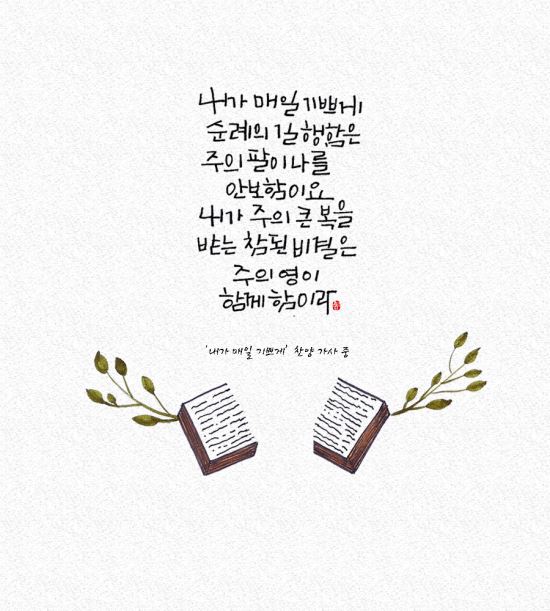 내가 매일 기쁘게
순례의 길 행함은
주의 팔이 나를
안보함이요
내가 주의 큰 복을
받는 참된 비결은
주의 영이
함께 함이라
'내가 매일 기쁘게' 찬양 가사 중